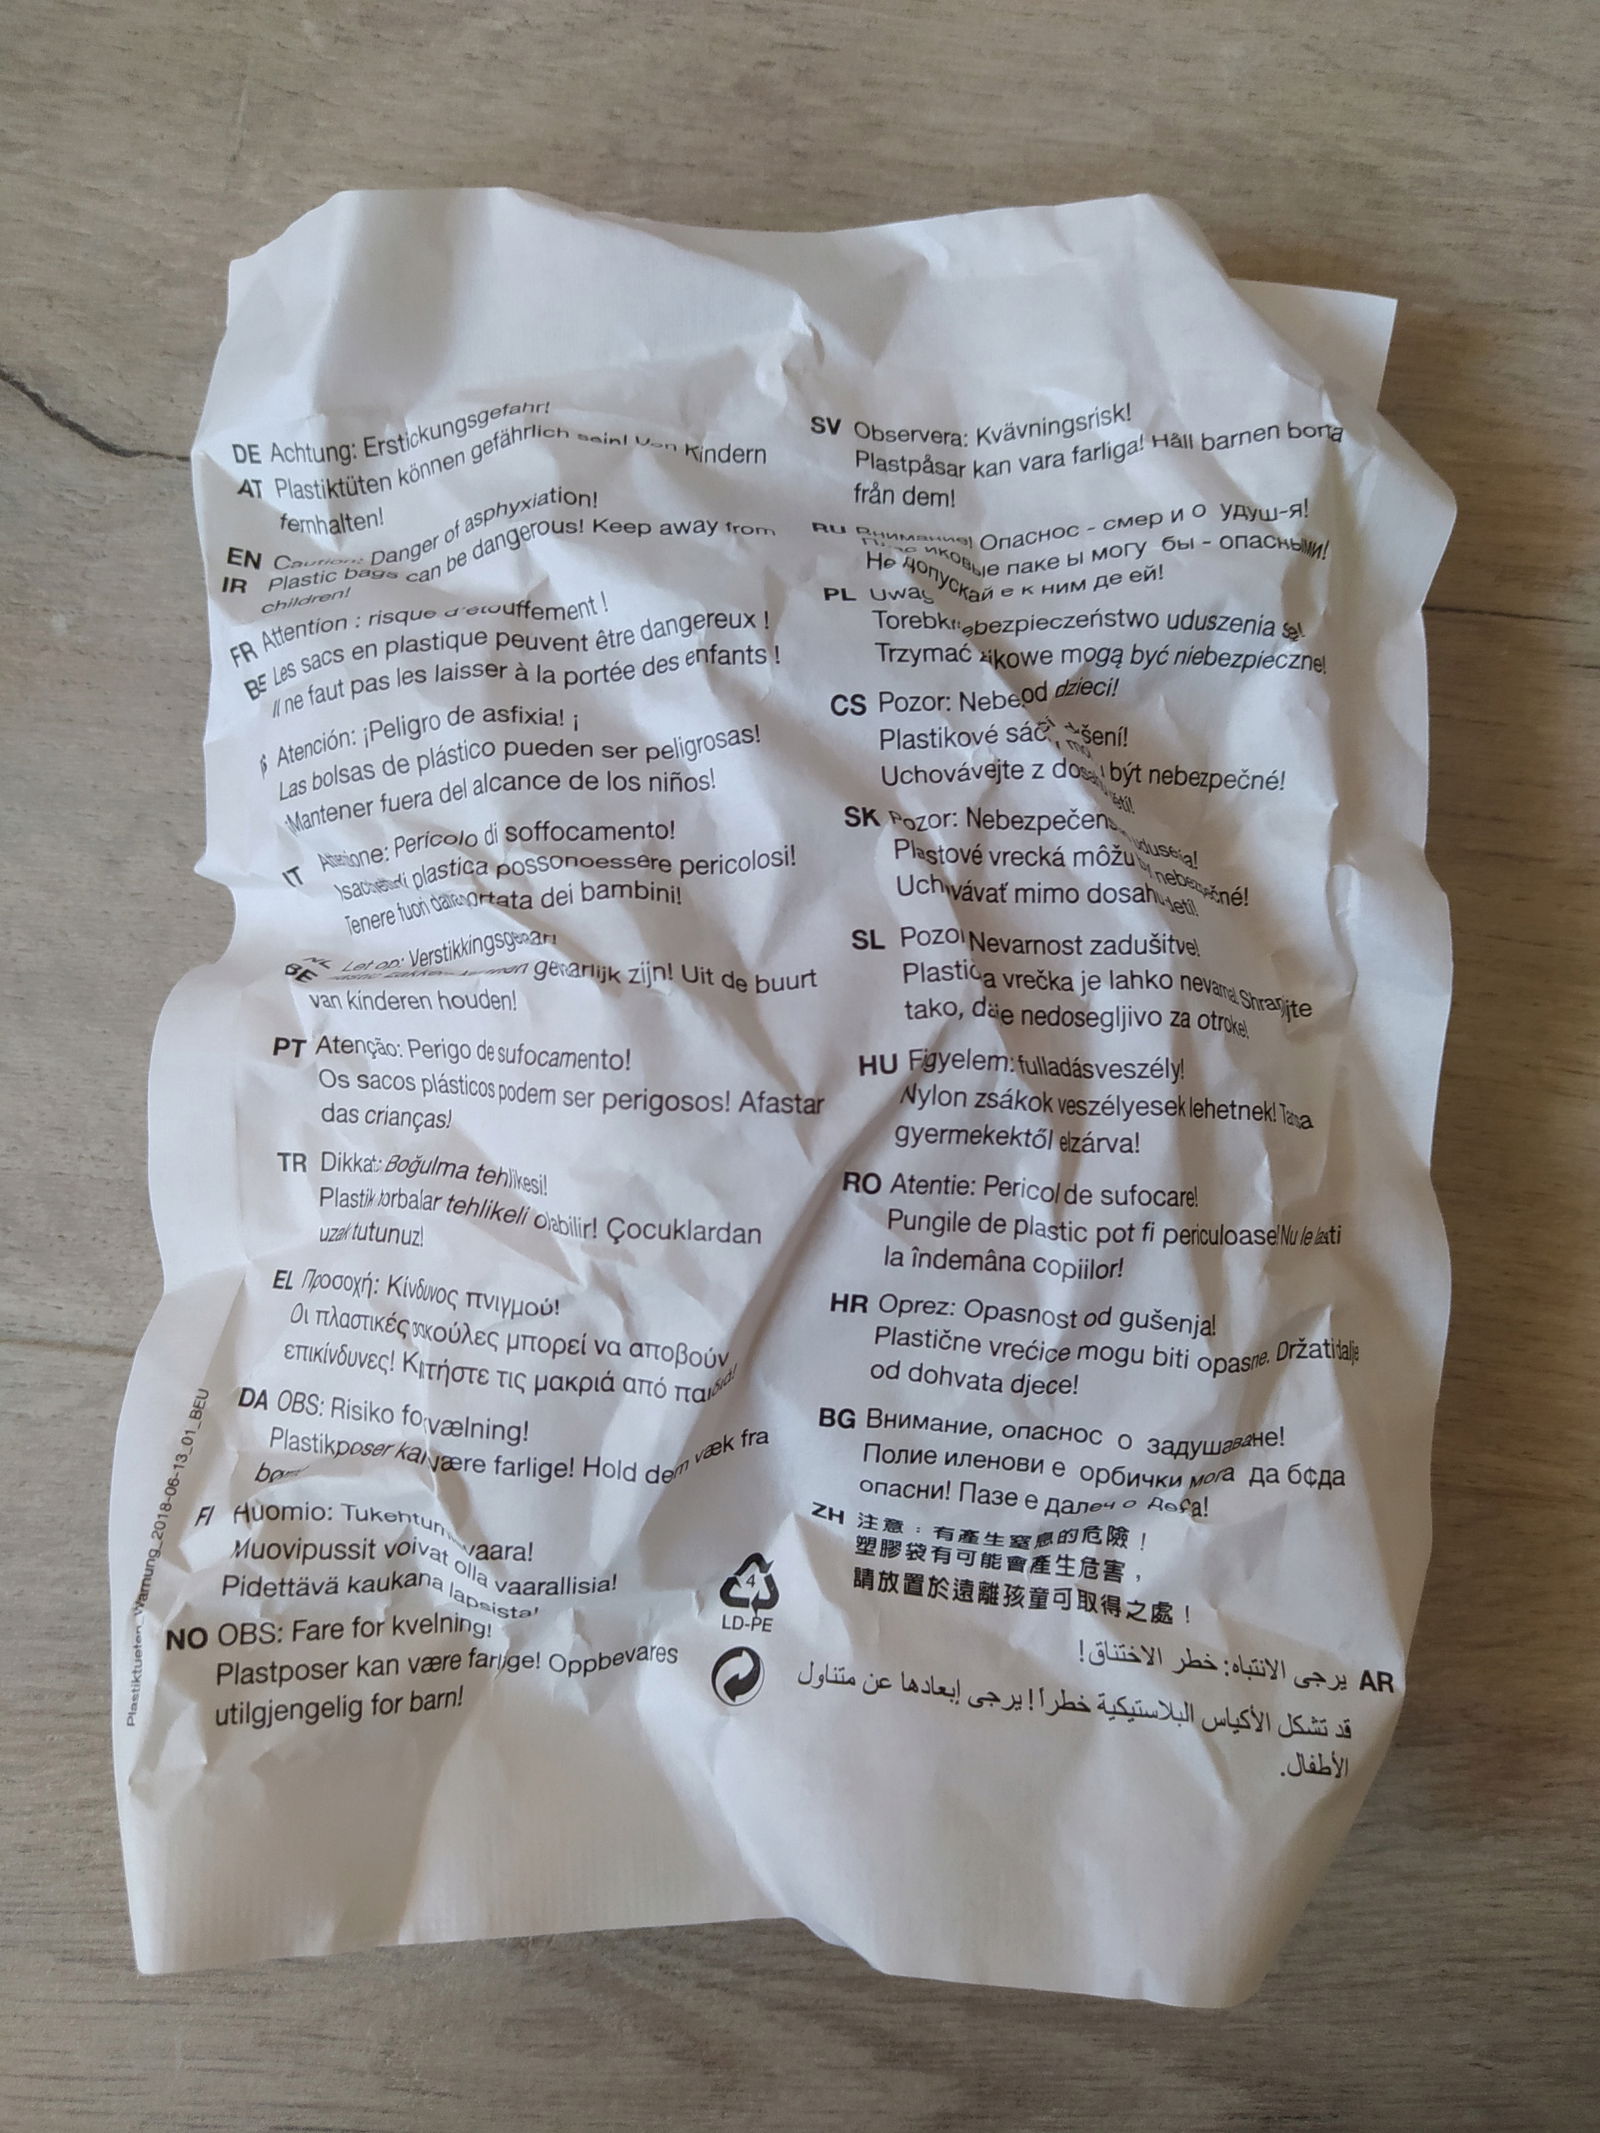 DE Achtung: Erstickungsgefahr!
AT Plastiktüten können gefährlich sein! Von Kindern
fernhalten!
EN Caution: Danger of asphyxiation!
IR Plastic bags can be dangerous! Keep away from
children!
FR Attention : risque d'étouffement !
BE Les sacs en plastique peuvent être dangereux !
Il ne faut pas les laisser à la portée des enfants !
Atención: ¡Peligro de asfixia! ¡
Las bolsas de plástico pueden ser peligrosas!
¡Mantener fuera del alcance de los niños!
IT Attenzione: Pericolo di soffocamento!
I sacchetti di plastica possono essere pericolosi!
Tenere fuori dalla portata dei bambini!
NL Let op: Verstikkingsgevaar!
BE gevaarlijk zijn! Uit de buurt
van kinderen houden!
PT Atenção: Perigo de sufocamento!
Os sacos plásticos podem ser perigosos! Afastar
das crianças!
TR Dikkat: Boğulma tehlikesi!
Plastik torbalar tehlikeli olabilir! Çocuklardan
uzak tutunuz!
EL Προσοχή: Κίνδυνος πνιγμού!
Οι πλαστικές σακούλες μπορεί να αποβούν
επικίνδυνες! Κρατήστε τις μακριά από παιδιά!
DA OBS: Risiko for kvælning!
Plastikposer kan være farlige! Hold dem væk fra
FI Huomio: Tukehtumisvaara!
Muovipussit voivat olla vaarallisia!
Pidettävä kaukana lapsista!
NO OBS: Fare for kvelning!
Plastposer kan være farlige! Oppbevares
utilgjengelig for barn!
Plastiktueten_Warnung_2018-06-13_01_BEU
SV Observera: Kvävningsrisk!
Plastpåsar kan vara farliga! Håll barnen borta
från dem!
RU Внимание! Опаснос - смер и о удуш-я!
иковые паке ы могу бы - опасными!
Не допускай е к ним де ей!
PL
uduszenia się!
Trzymać mogą być niebezpieczne!
od dzieci!
CS Pozor:
Plastikové
Uchovávejte z dosahu být nebezpečné!
SK Pozor: Nebezpečenstvo udusenia!
Plastové vrecká môžu byť nebezpečné!
Uchovávať mimo dosahu detí!
SL Pozor Nevarnost zadušitve!
Plastična vrečka je lahko nevarna! Shranjujte
tako, da je nedosegljivo za otroke!
HU Figyelem: fulladásveszély!
Nylon zsákok veszélyesek lehetnek! Tartsa
gyermekektől elzárva!
RO Atentie: Pericol de sufocare!
Pungile de plastic pot fi periculoase! Nu le lasati
la îndemâna copiilor!
HR Oprez: Opasnost od gušenja!
Plastične vrećice mogu biti opasne. Držati dalje
od dohvata djece!
BG Внимание, опаснос о задушаване!
Полие иленови е орбички мога да бѫда
опасни! Пазе е далеч о деца!
ZH 注意：有產生窒息的危險！
塑膠袋有可能會產生危害，
請放置於遠離孩童可取得之處！
AR يرجى الانتباه: خطر الاختناق!
قد تشكل الأكياس البلاستيكية خطراً! يرجى إبعادها عن متناول
الأطفال.
4
LD-PE